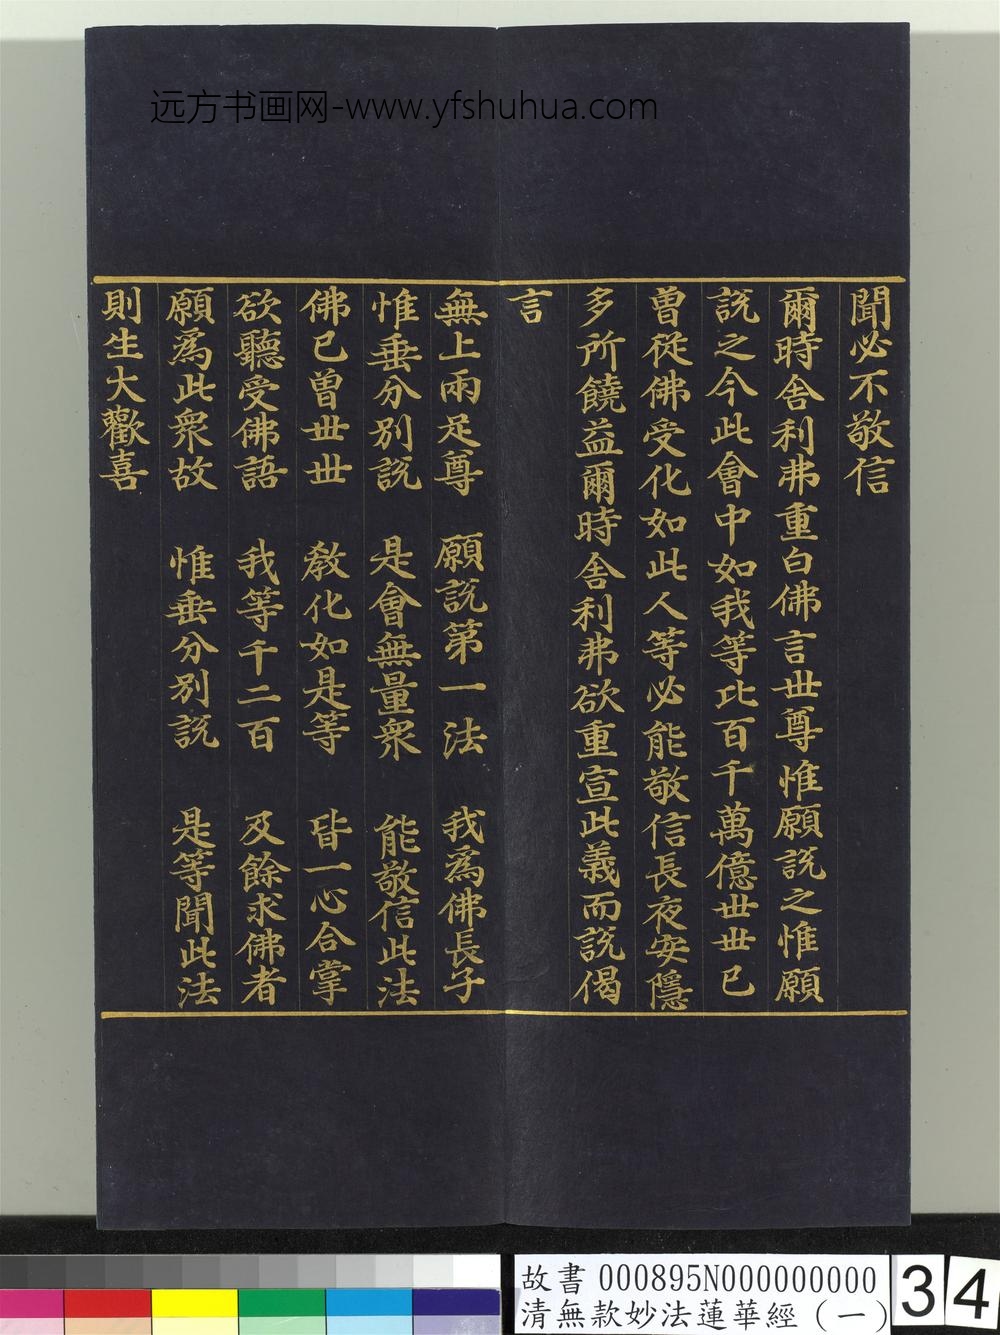 远方书画网-www.yfshuhua.com
聞必不敬信
爾時舍利弗重白佛言世尊惟願說之惟願
說之今此會中如我等比百千萬億世世已
曾從佛受化如此人等必能敬信長夜安隱
多所饒益爾時舍利弗欲重宣此義而說偈
言
無上兩足尊 願說第一法 我為佛長子
惟垂分別說 是會無量眾 能敬信此法
佛已曾世世 教化如是等 皆一心合掌
欲聽受佛語 我等千二百 及餘求佛者
願為此眾故 惟垂分別說 是等聞此法
則生大歡喜
故書 000895N000000000
清無款妙法蓮華經(一)
34